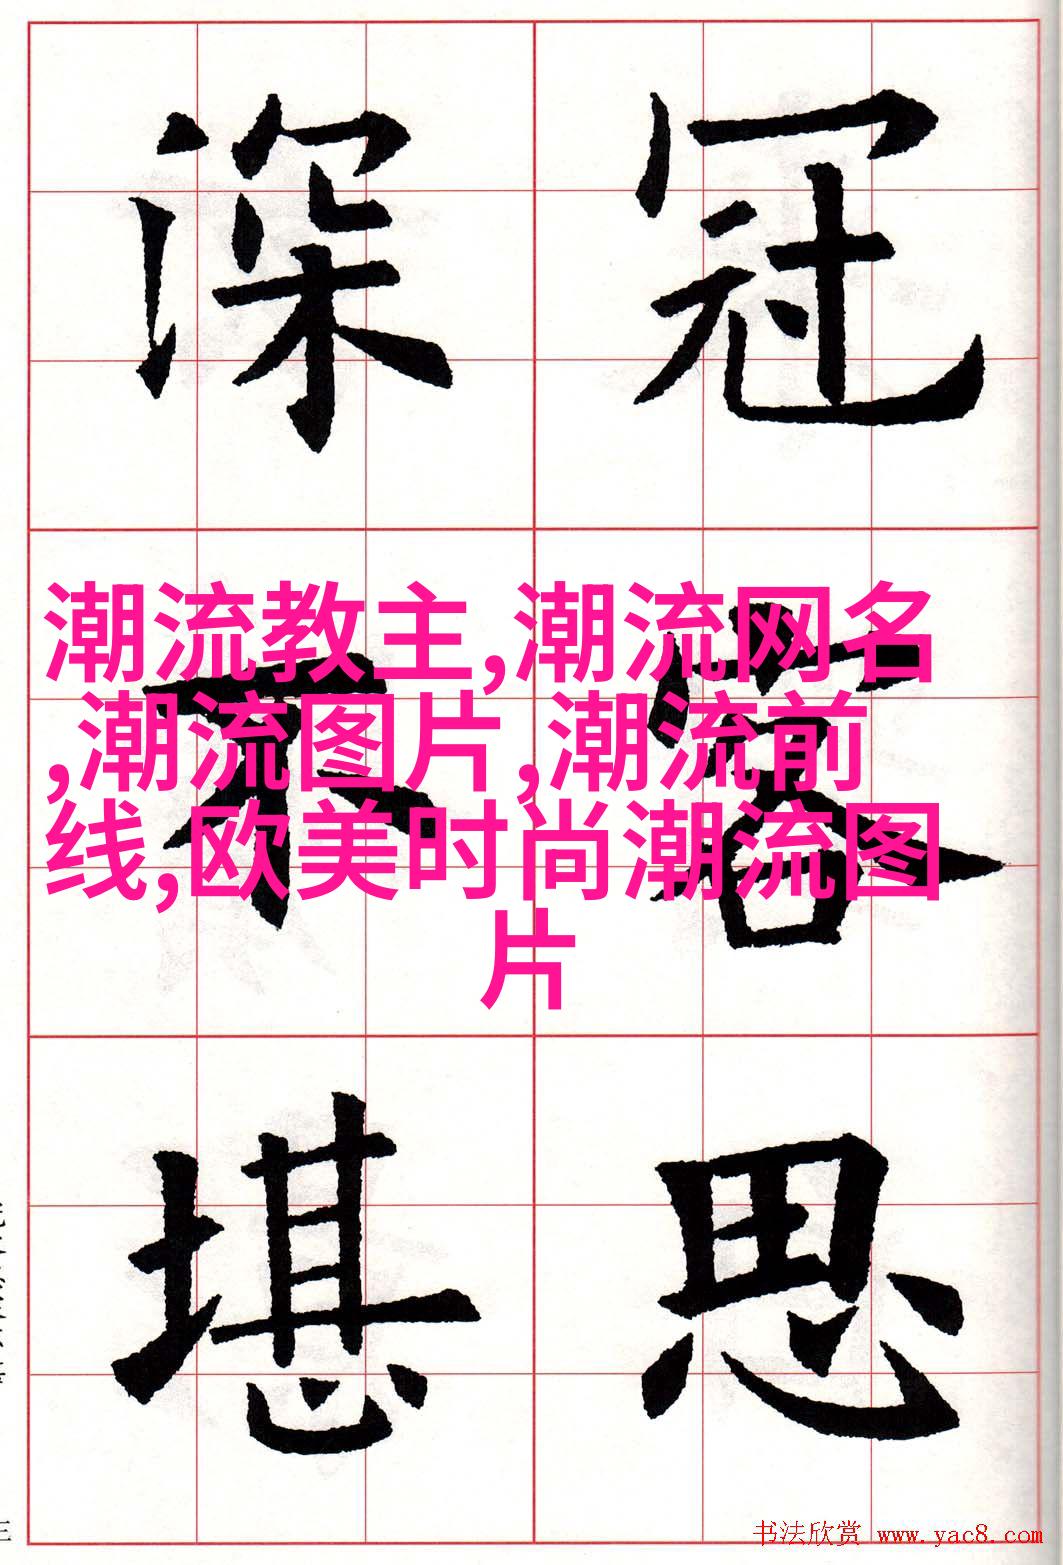 深 冠
潮流教主,潮流网名
,潮流图片,潮流前
线,欧美时尚潮流图
片
不 容
堪 思
书法欣赏 www.yac8.com